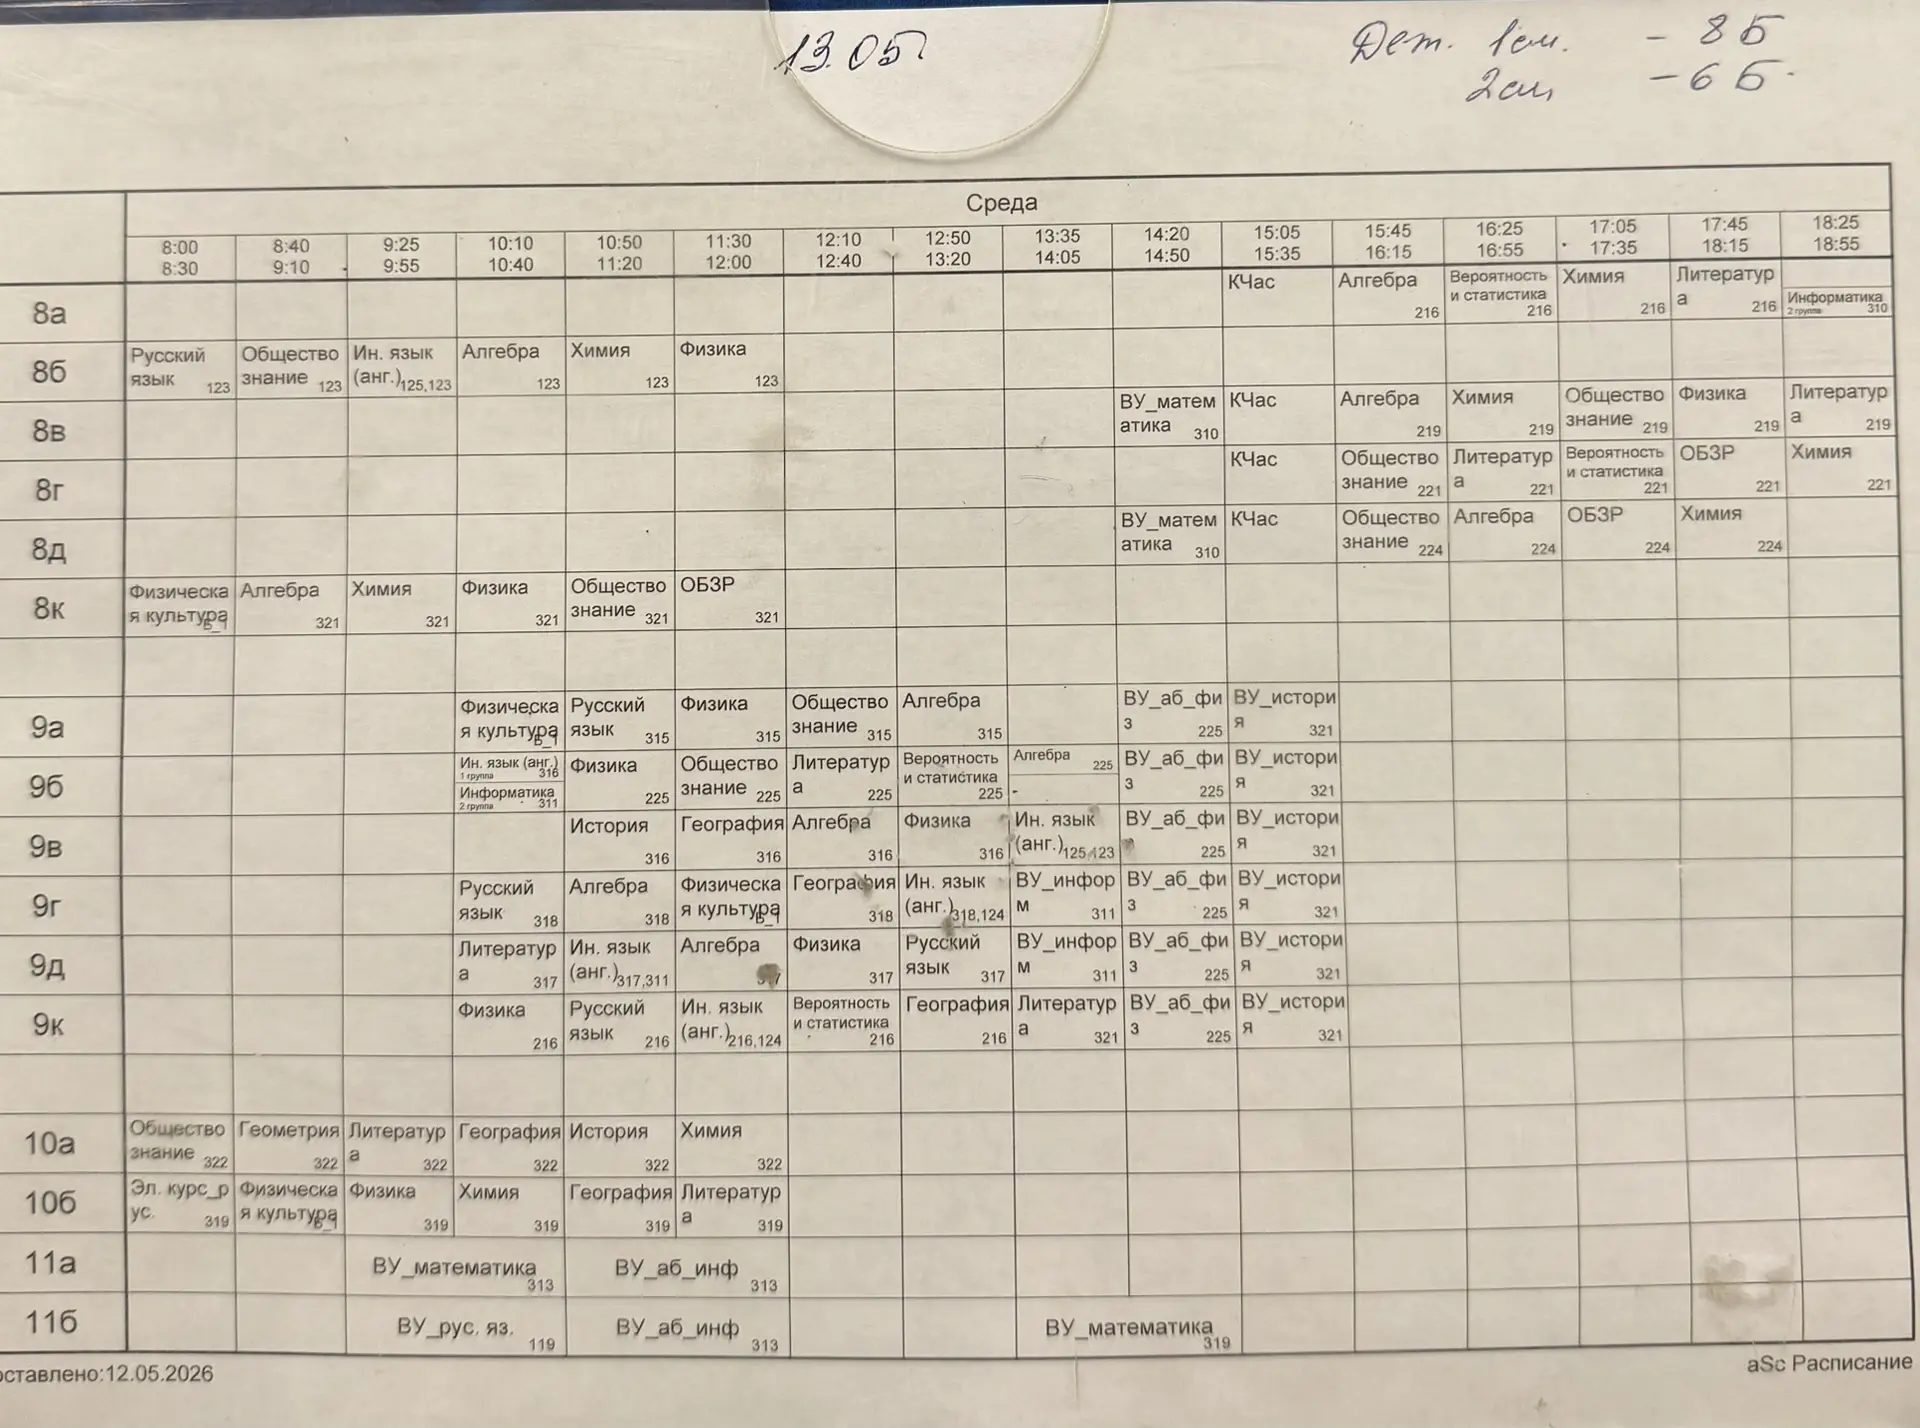 13.05
Дет. 1см. - 8Б
2см - 6Б.
Среда
8:00 8:40 9:25 10:10 10:50 11:30 12:10 12:50 13:35 14:20 15:05 15:45 16:25 17:05 17:45 18:25
8:30 9:10 9:55 10:40 11:20 12:00 12:40 13:20 14:05 14:50 15:35 16:15 16:55 17:35 18:15 18:55
8а
КЧас
Алгебра
216
Вероятность
и статистика
216
Химия
216
Литератур
а 216
Информатика
2 группа 310
8б
Русский
язык 123
Общество
знание 123
Ин. язык
(анг.) 125,123
Алгебра
123
Химия
123
Физика
123
8в
ВУ_матем
атика 310
КЧас
Алгебра
219
Химия
219
Общество
знание 219
Физика
219
Литератур
а 219
8г
КЧас
Общество
знание 221
Литератур
а 221
Вероятность
и статистика
221
ОБЗР
221
Химия
221
8д
ВУ_матем
атика 310
КЧас
Общество
знание 224
Алгебра
224
ОБЗР
224
Химия
224
8к
Физическа
я культура Б_1
Алгебра
321
Химия
321
Физика
321
Общество
знание 321
ОБЗР
321
9а
Физическа
я культура Б_1
Русский
язык 315
Физика
315
Общество
знание 315
Алгебра
315
ВУ_аб_фи
з 225
ВУ_истори
я 321
9б
Ин. язык (анг.)
1 группа 316
Информатика
2 группа 311
Физика
225
Общество
знание 225
Литератур
а 225
Вероятность
и статистика
225
Алгебра
225
-
ВУ_аб_фи
з 225
ВУ_истори
я 321
9в
История
316
География
316
Алгебра
316
Физика
316
Ин. язык
(анг.) 125,123
ВУ_аб_фи
225
ВУ_истори
я 321
9г
Русский
язык 318
Алгебра
318
Физическа
я культура Б_1
География
318
Ин. язык
(анг.) 318,124
ВУ_инфор
м 311
ВУ_аб_фи
з 225
ВУ_истори
я 321
9д
Литератур
а 317
Ин. язык
(анг.) 317,311
Алгебра
317
Физика
317
Русский
язык 317
ВУ_инфор
м 311
ВУ_аб_фи
з 225
ВУ_истори
я 321
9к
Физика
216
Русский
язык 216
Ин. язык
(анг.) 216,124
Вероятность
и статистика
216
География
216
Литератур
а 321
ВУ_аб_фи
з 225
ВУ_истори
я 321
10а
Общество
знание 322
Геометрия
322
Литератур
а 322
География
322
История
322
Химия
322
10б
Эл. курс_р
ус. 319
Физическа
я культура Б_1
Физика
319
Химия
319
География
319
Литератур
а 319
11а
ВУ_математика
313
ВУ_аб_инф
313
11б
ВУ_рус. яз.
119
ВУ_аб_инф
313
ВУ_математика
319
оставлено:12.05.2026
aSc Расписание